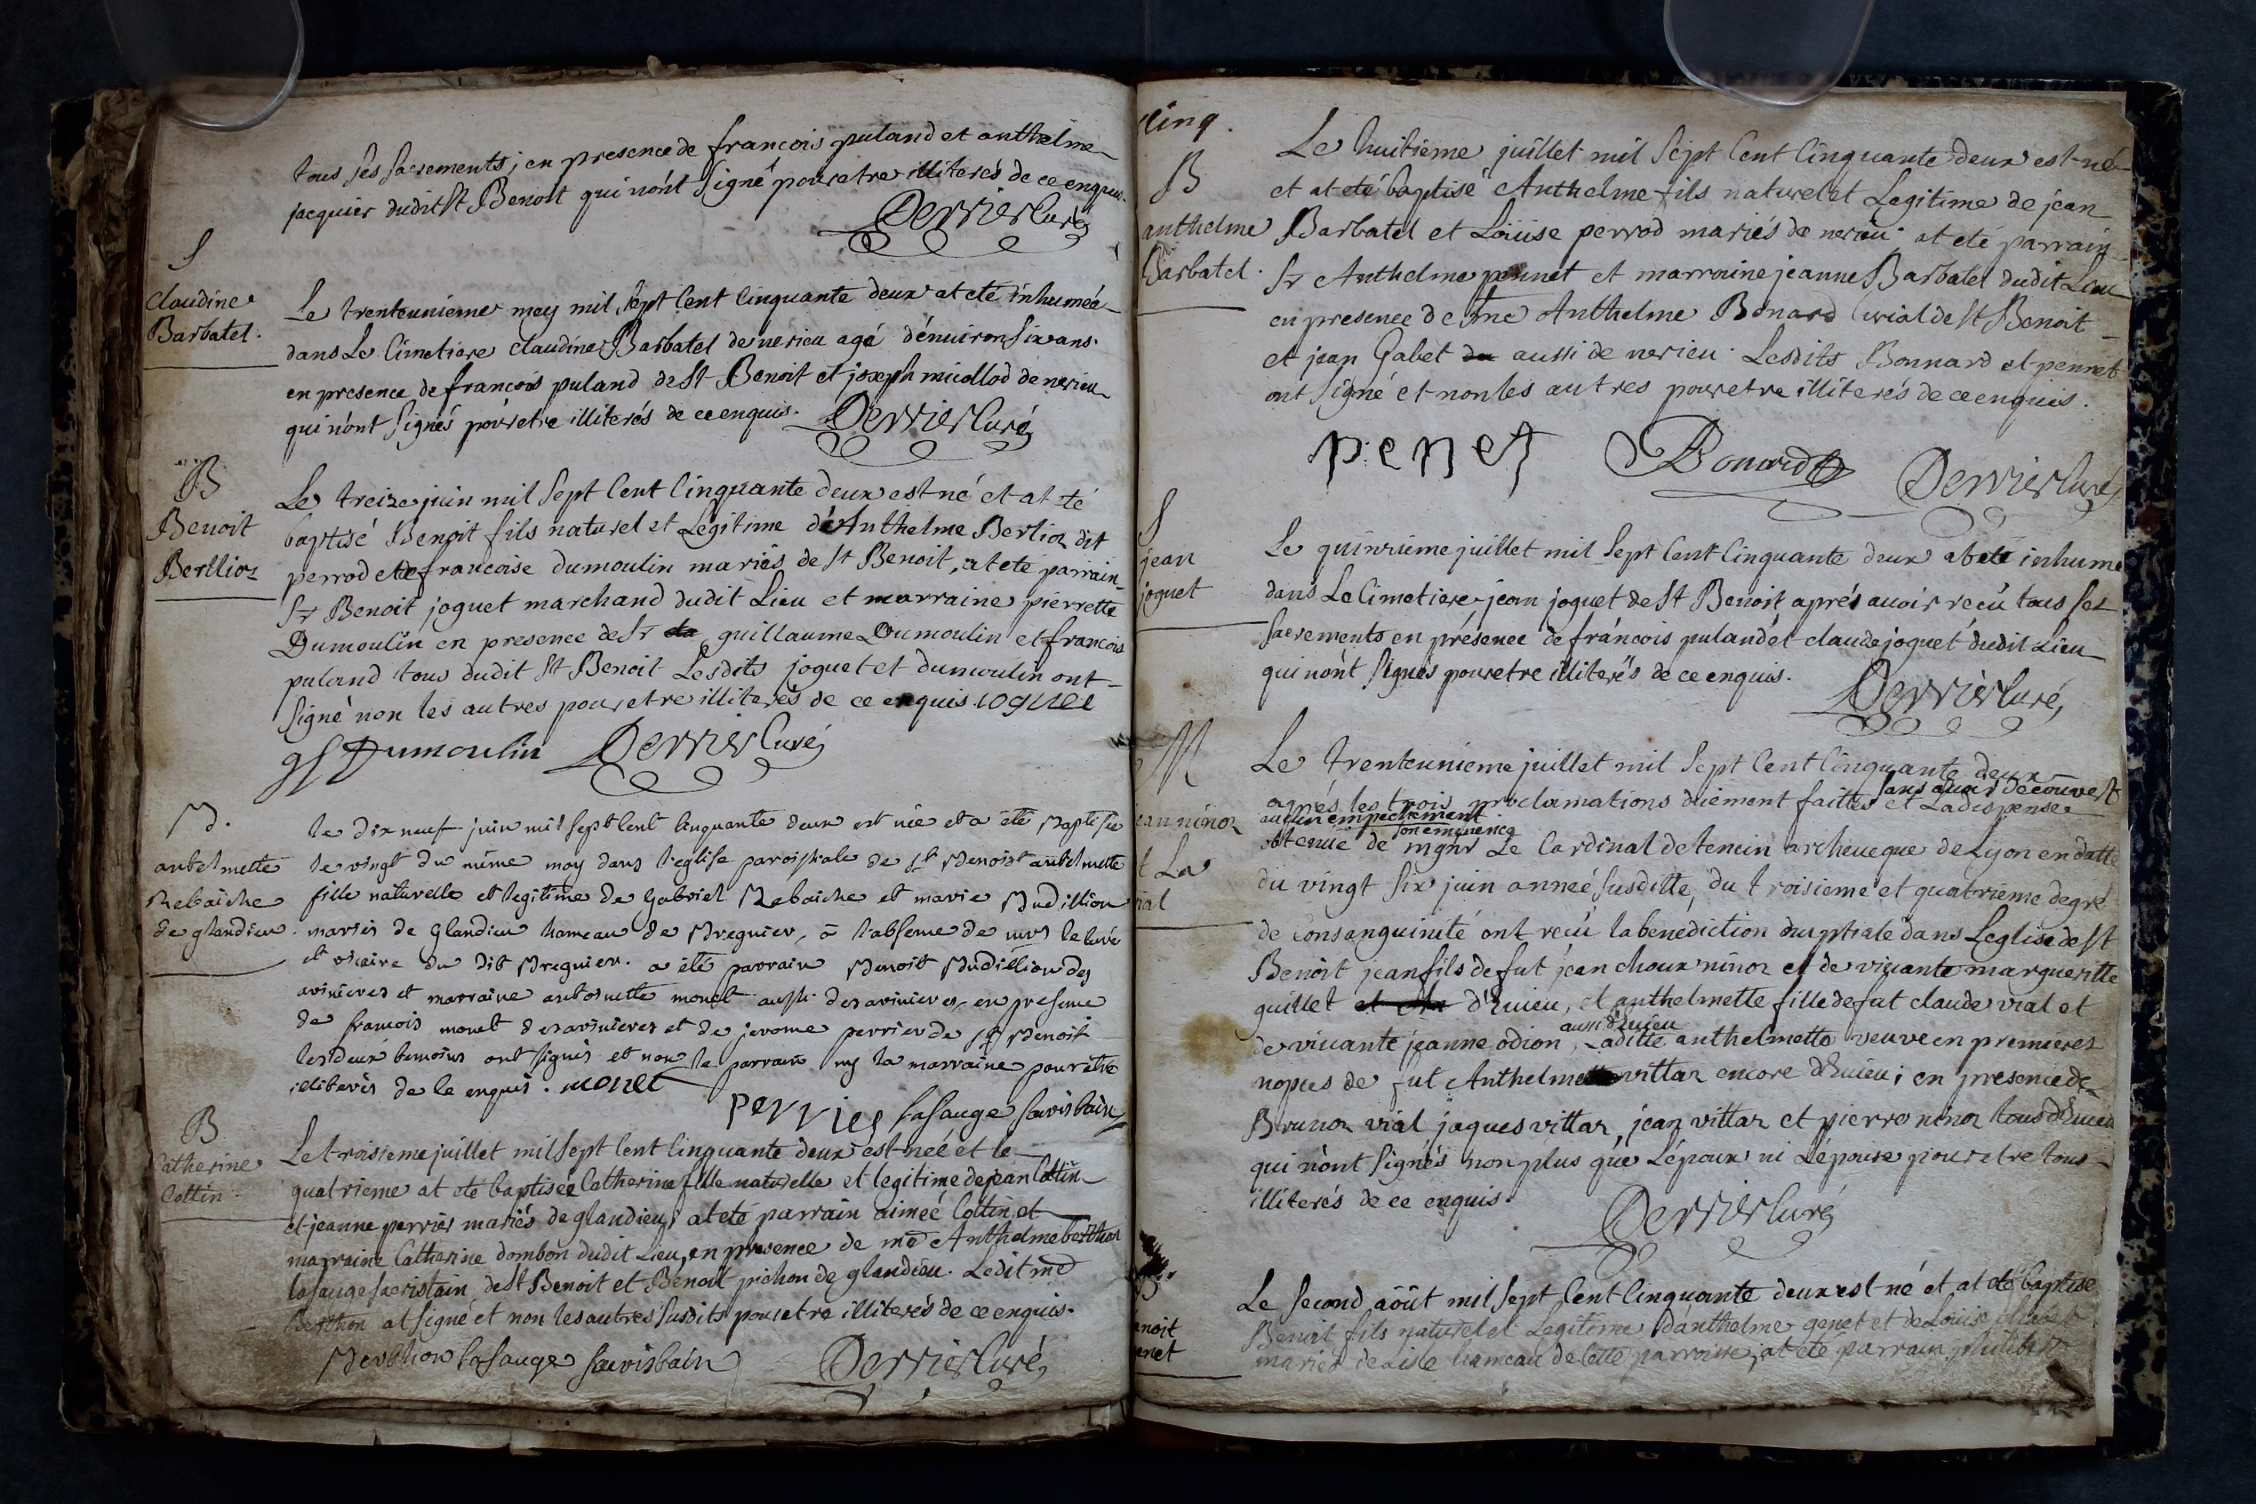 tous ses sacrements; en presence de francois puland et anthelme
jacquier dudit St Benoit qui nónt signé pour etre illiterés de ce enquis.
Derrier Curé
S
Claudine
Barbatel.
Le trenteunieme may mil sept Cent Cinquante deux at eté inhumeé
dans Le Cimetiere claudine Barbatel de nerieu agé dénuiron six ans.
en presence de francois puland de St Benoit et joseph micollod de nerieu
qui nónt signés pour etre illiterés de ce enquis. Derrier Curé
B
Benoit
Berllioz
Le treize juin mil sept Cent Cinquante deux est né et at té
baptisé Benoit fils naturel et Legitime dé Anthelme Berlioz dit
perrod et de francoise dumoulin mariés de St Benoit, at eté parrain
Sr Benoit joguet marchand dudit Lieu et marraine pierrette
Dumoulin en presence de Sr guillaume Dumoulin et francois
puland tous dudit St Benoit Lesdits joguet et dumoulin ont
signé non les autres pour etre illiterés de ce enquis. ioguet
gf Dumoulin Derrier Curé
B.
antelmette
Rebaiche
de glandieu.
le dix neuf juin mil sept Cent Cinquante deux est née et a été Baptisée
le vingt du même moy dans l'eglise paroissiale de St Benoist antelmette
fille naturelle et legitime de Gabriel Rebaiche et marie Budillion
mariés de Glandieu hameau de Bregnier, à l'absence de mrs le Curé
et vicaire du dit Bregnier. a été parrain Benoit Budillion des
avinieres et marraine antoinette monet aussi des avinieres, en presence
de francois monet des avinieres et de jerome perrier de St Benoit
les deux temoins ont signés et non le parrain ny la marraine pour etre
illiterés de Ce enquis. monet
perrier Lasauge sacristain
B
Catherine
Cottin
Le troisieme juillet mil sept Cent Cinquante deux est neé et le
quatrieme at eté baptiseé Catherine fille naturelle et legitime de jean Cottin
et jeanne perrier mariés de glandieu; at eté parrain aimeé Cottin et
marraine Catherine dombon dudit Lieu, en presence de me Anthelme berthon
lasauge sacristain de St Benoit et Benoit pichon de glandieu. Ledit me
Berthon at signé et non les autres susdits pour etre illiterés de ce enquis.
Berthon Lasauge sacristain Derrier Curé
Cinq.
B
anthelme
Barbatel.
Le huitieme juillet mil sept Cent Cinquante deux est né
et at eté baptisé Anthelme fils naturel et Legitime de jean
Barbatel et Loüise perrod mariés de nerieu. at eté parrain
Sr Anthelme pennet et marraine jeanne Barbatel dudit Lieu
en presence de Me Anthelme Bonard Curial de St Benoit
et jean Gabet aussi de nerieu. Lesdits Bonnard et pennet
ont signé et non les autres pour etre illiterés de ce enquis.
penet Bonard Derrier Curé
S
jean
joguet
Le quinzieme juillet mil sept Cent Cinquante deux at eté inhumé
dans Le Cimetiere jean joguet de St Benoit aprés auoir recû tous ses
sacrements en présence de fráncois puland et claude joguet dudit Lieu
qui nónt signés pour etre illiterés de ce enquis.
Derrier Curé,
M
jean ninoz
et La
vial
Le trenteunieme juillet mil sept Cent Cinquante deux
aprés les trois proclamations düement faittes sans auoir découvert
aucun empechement et La dispense
obtenüe de mgnr son eminence Le Cardinal de tencin archeueque de Lyon en datte
du vingt six juin anneé susditte, du troisieme et quatrieme degré
de Consanguinité ont recû la benédiction nuptiale dans L'eglise de St
Benoit jean fils de fut jean choux ninoz et de viuante margueritte
guillet d'huieu, et anthelmette fille de fut claude vial et
de viuante jeanne odion aussi d'huieu, Laditte anthelmette veuve en premieres
nopces de fut Anthelme vittaz encore d'huieu; en presence de
Brunoz vial jaques vittaz, jean vittaz et pierre ninoz tous d'huieu
qui nònt signés non plus que L'époux ni L'épouse pour etre tous
illiterés de ce enquis.
Derrier Curé
B
benoit
genet
Le second aôût mil sept Cent Cinquante deux est né et at eté baptisé
Benoit fils naturel et Legitime dánthelme genet et de Loüise
mariés de Lisle hameau de cette parroisse, at eté parrain philibert